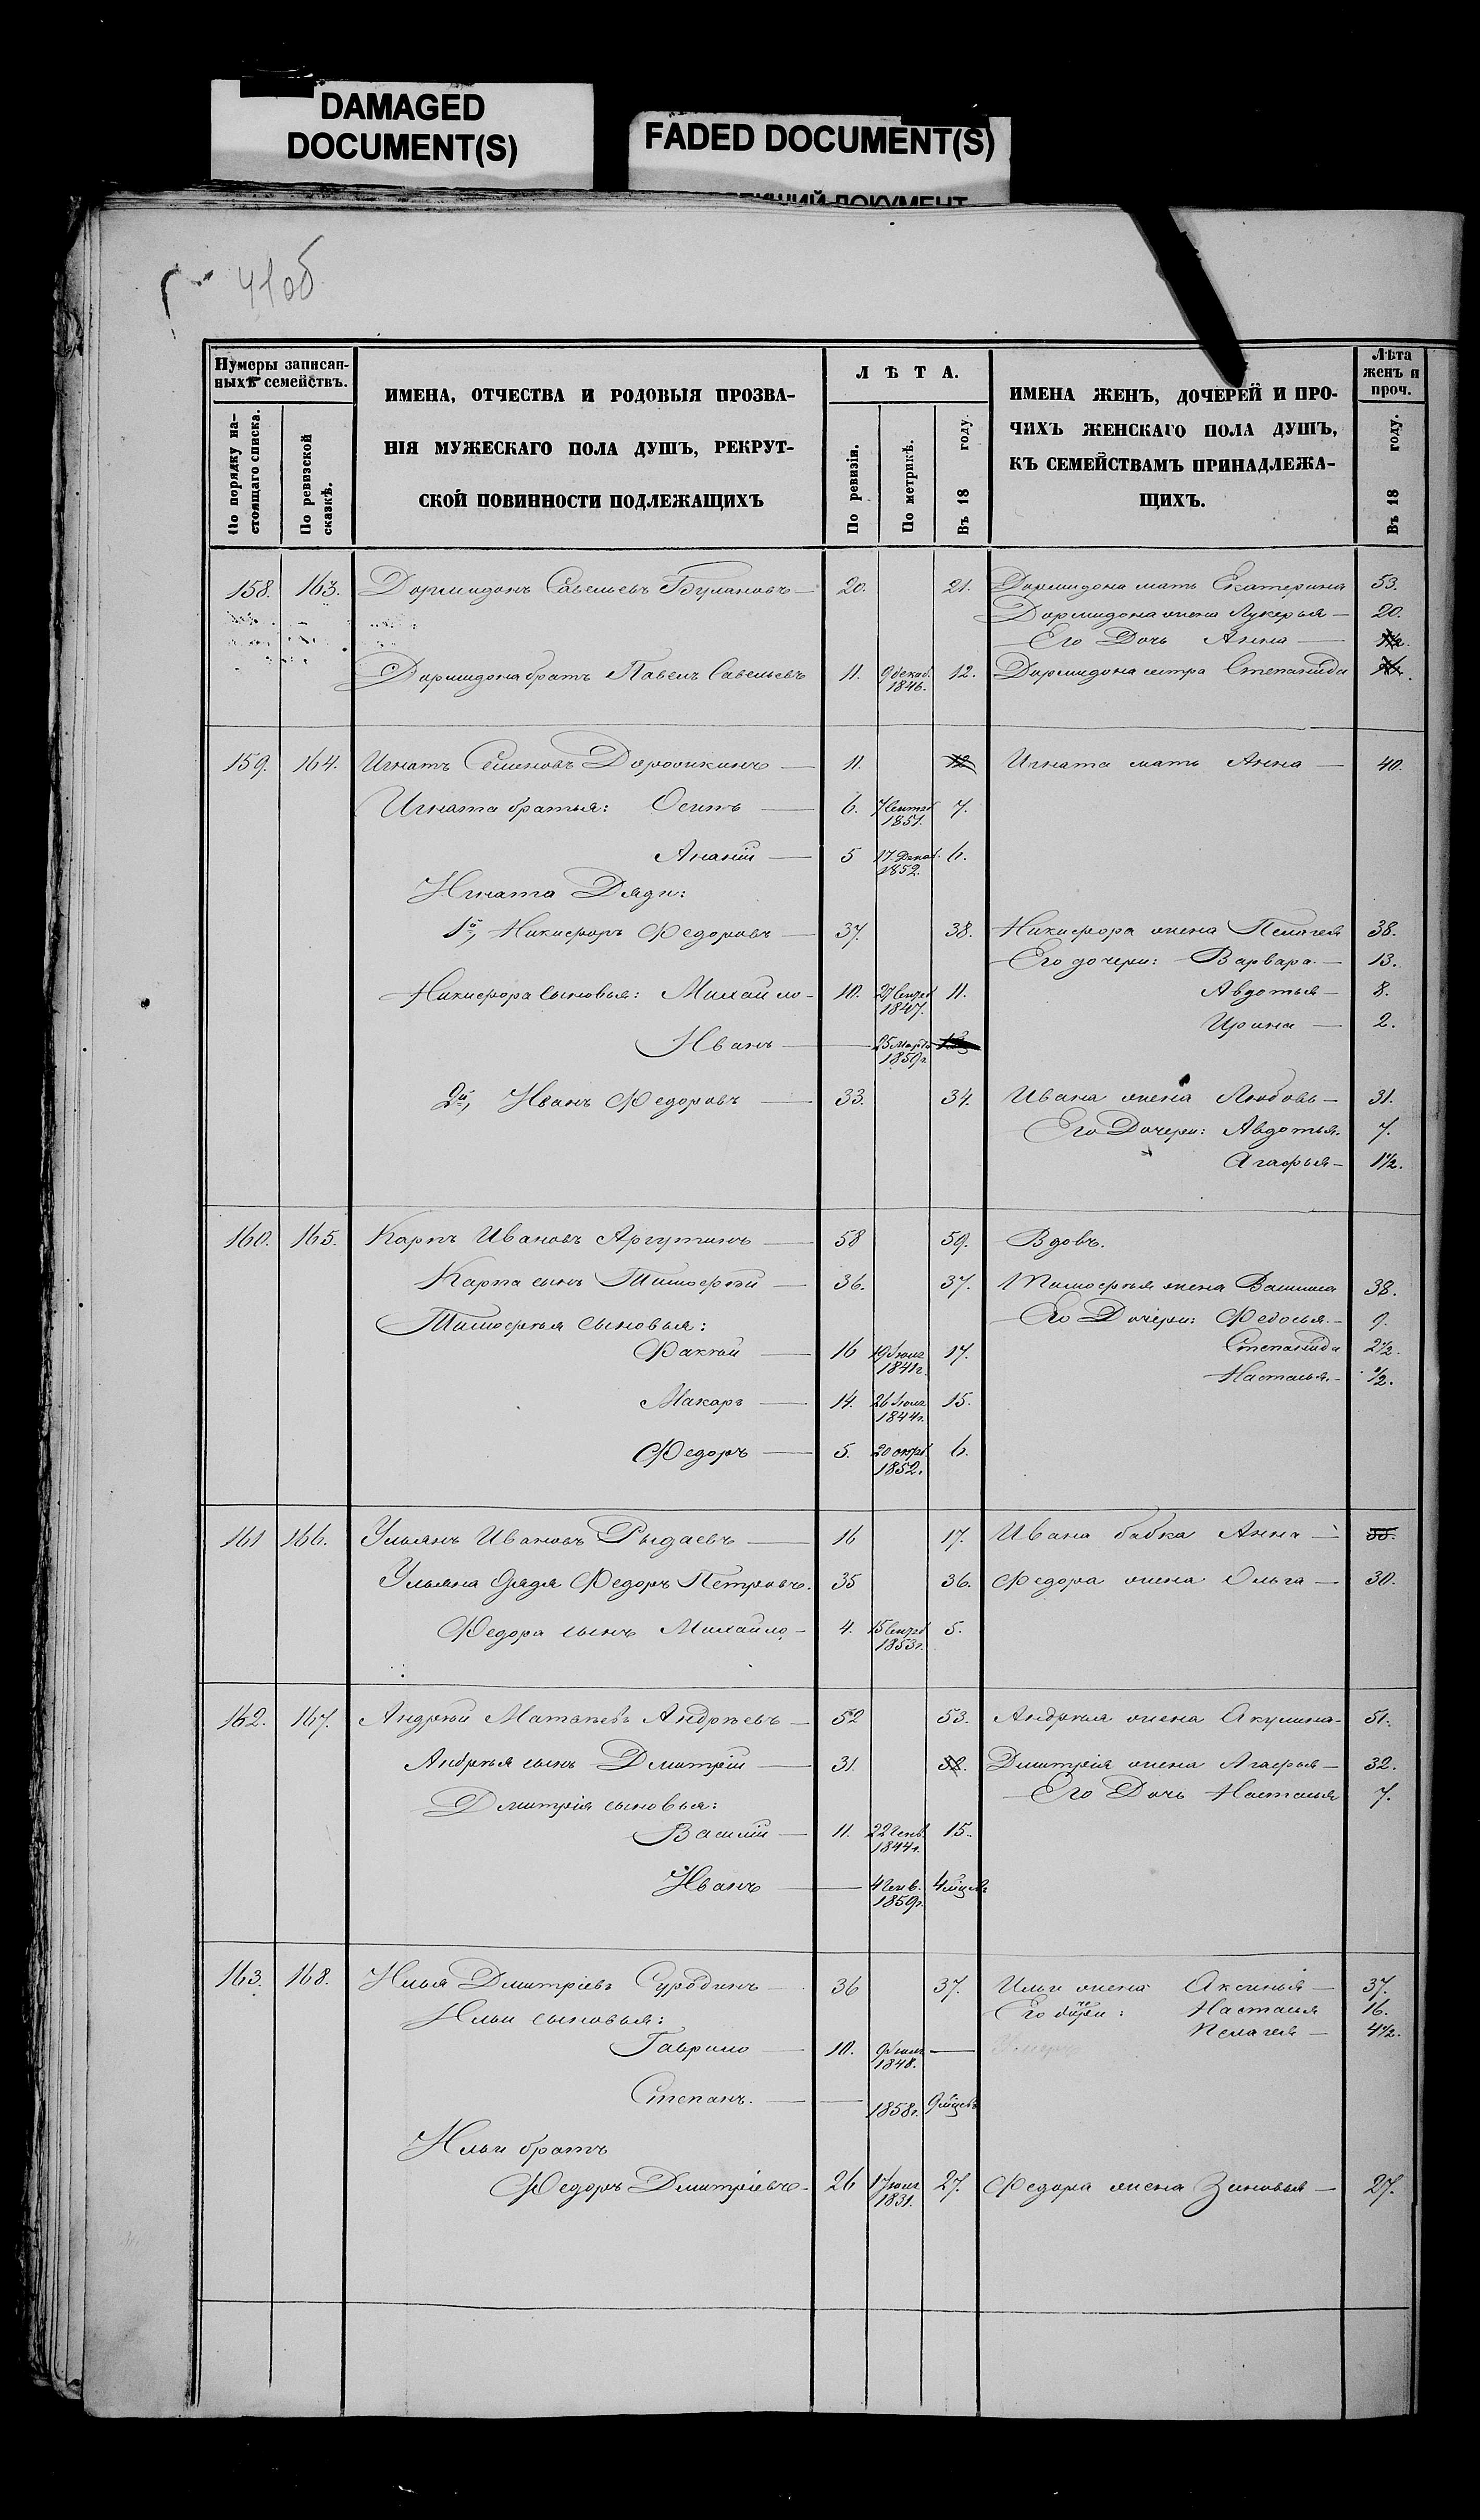 DAMAGED
DOCUMENT(S)
FADED DOCUMENT(S)
41об
Нумеры записан-
ныхъ семействъ.
По порядку на-
стоящаго списка.
По ревизской
сказкѣ.
ИМЕНА, ОТЧЕСТВА И РОДОВЫЯ ПРОЗВА-
НІЯ МУЖЕСКАГО ПОЛА ДУШЪ, РЕКРУТ-
СКОЙ ПОВИННОСТИ ПОДЛЕЖАЩИХЪ
ЛѢТА.
По ревизіи.
По метрикѣ.
Въ 18 году.
ИМЕНА ЖЕНЪ, ДОЧЕРЕЙ И ПРО-
ЧИХЪ ЖЕНСКАГО ПОЛА ДУШЪ,
КЪ СЕМЕЙСТВАМЪ ПРИНАДЛЕЖА-
ЩИХЪ.
Лѣта
женъ и
проч.
Въ 18 году.
158. 163. Дормидонъ Савельевъ Булановъ — 20. 21. Дормидона мать Екатерина 53.
Дормидона жена Лукерья — 20.
Его Дочь Анна —
Дормидона братъ Павелъ Савельевъ 11. 9 декаб. 1846. 12. Дормидона сестра Степанида
159. 164. Игнатъ Семеновъ Дорошкинъ — 11. 12 Игната мать Анна — 40.
Игната братья: Осипъ — 6. 7 Сентяб 1851. 7.
Ананій — 5 17 Декаб. 1852. 6.
Игната Дяди:
1й, Никифоръ Федоровъ — 37. 38. Никифора жена Пелагея 38.
Его дочери: Варвара — 13.
Никифора сыновья: Михайло — 10. 27 Сентяб 1847. 11. Авдотья — 8.
Ирина — 2.
Иванъ — 25 Марта 1859г
2й, Иванъ Федоровъ — 33. 34. Ивана жена Любовь — 31.
Его Дочери: Авдотья. 7.
Агафья — 1½.
160. 165. Карпъ Ивановъ Аргутинъ — 58 59. Вдовъ.
Карпа сынъ Тимофѣй — 36. 37. Тимофѣя жена Василиса 38.
Тимофѣя сыновья: Его Дочери: Федосья — 9.
Фактѣй — 16 19 Іюля 1841г. 17. Степанида 2½.
Настасья. — ½.
Макаръ — 14. 26 Іюля 1844г. 15.
Федоръ — 5. 20 октяб 1852. 6.
161 166. Ульянъ Ивановъ Рыдаевъ — 16 17. Ивана бабка Анна —
Ульяна дядя Федоръ Петровъ. 35 36. Федора жена Ольга — 30.
Федора сынъ Михайло — 4. 15 Сентяб 1853г. 5.
162. 167. Андрѣй Матвѣевъ Андрѣевъ — 52 53. Андрѣя жена Акулина — 51.
Андрѣя сынъ Дмитрій — 31. 32. Дмитрія жена Агафья — 32.
Дмитрія сыновья: Его Дочь Настасья 7.
Василій — 11. 22 Генв. 1844г. 15.
Иванъ — 4 Генв. 1859г. 4 мѣсяц
163. 168. Илья Дмитріевъ Суродинъ — 36 37. Ильи жена Аксинья — 37.
Ильи сыновья: Его дочери: Настасья 16.
Пелагея — 4½.
Гаврило — 10. 9 Іюля 1848. —
Степанъ. — 1858г. 9 мѣсяц
Ильи братъ
Федоръ Дмитріевъ — 26 17 июля 1831. 27. Федора жена Зиновья — 27.